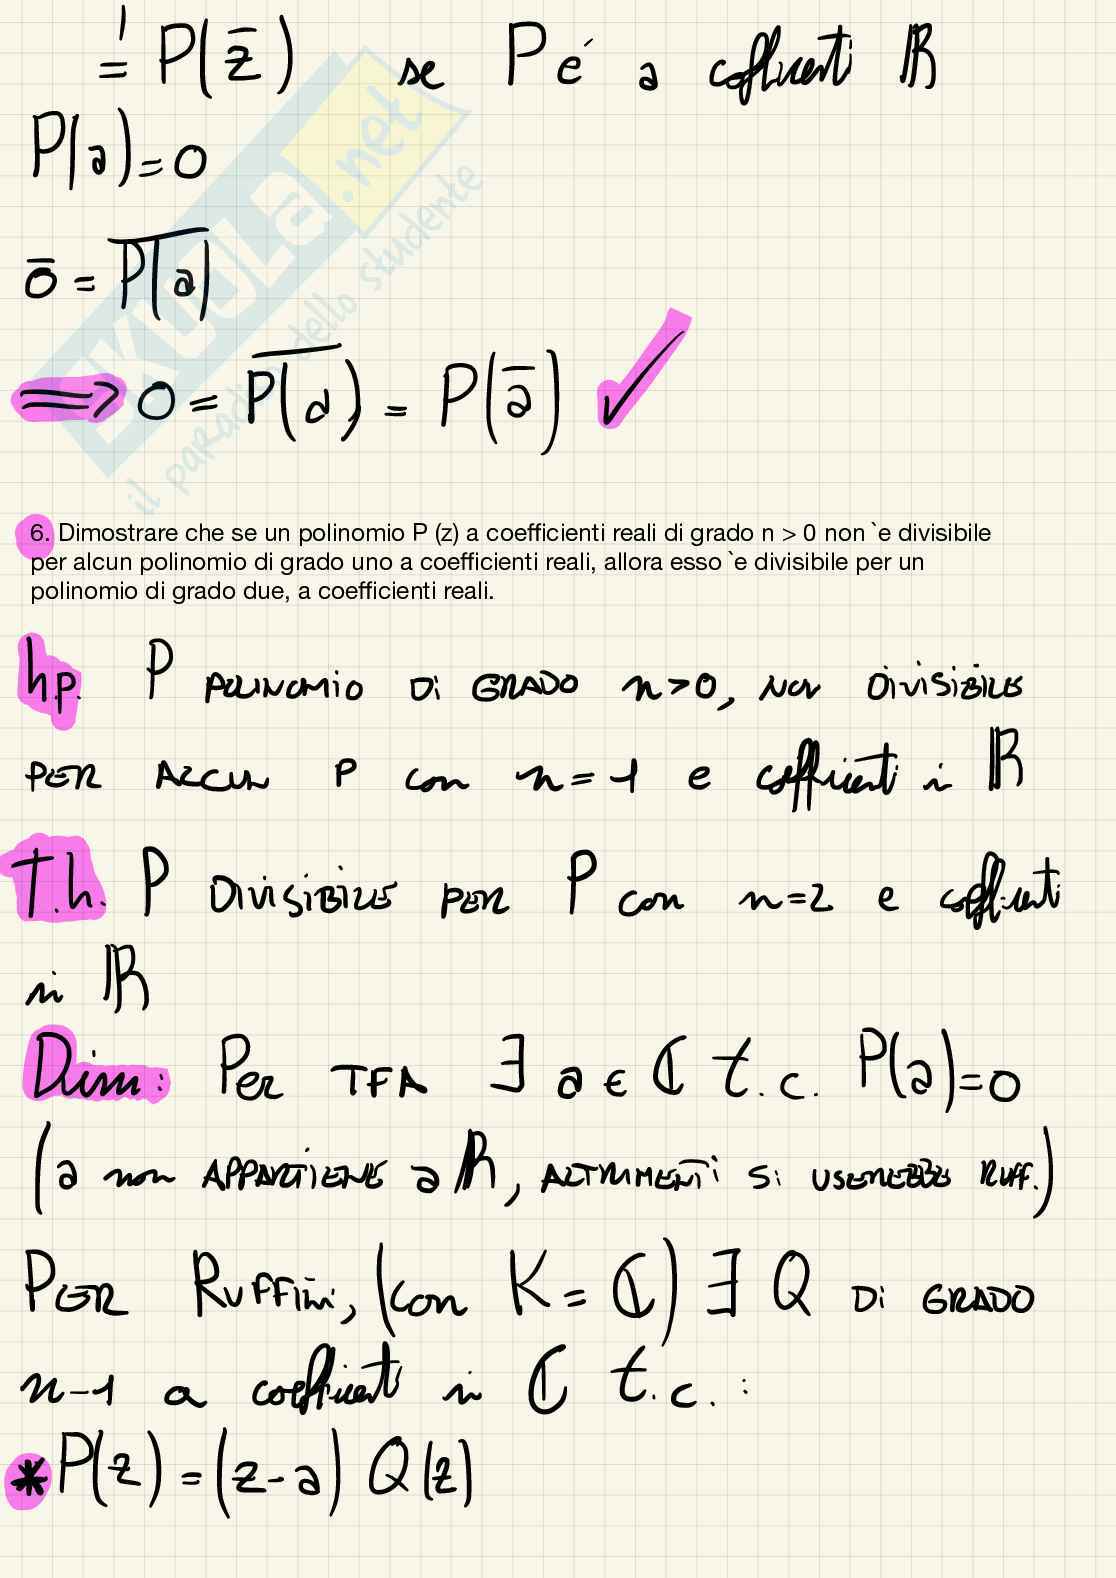 = P(z̅) se P é a coefficienti ℝ
P(a)=0
0̅ = P(a)̅
⟹ 0 = P(a)̅ = P(a̅) ✓
SKUOLA.net
il paradiso dello studente
6. Dimostrare che se un polinomio P (z) a coefficienti reali di grado n > 0 non `e divisibile
per alcun polinomio di grado uno a coefficienti reali, allora esso `e divisibile per un
polinomio di grado due, a coefficienti reali.
hp. P POLINOMIO DI GRADO n>0, NON DIVISIBILE
PER ALCUN P con n=1 e coefficienti in ℝ
T.h. P DIVISIBILE PER P con n=2 e coefficienti
in ℝ
Dim: Per TFA ∃ a ∈ ℂ t.c. P(a)=0
(a non APPARTIENE a ℝ, ALTRIMENTI Si USEREBBE RUFF.)
PER RUFFINI, (con K=ℂ) ∃ Q Di GRADO
n-1 a coefficienti in ℂ t.c.:
* P(z) = (z-a) Q(z)